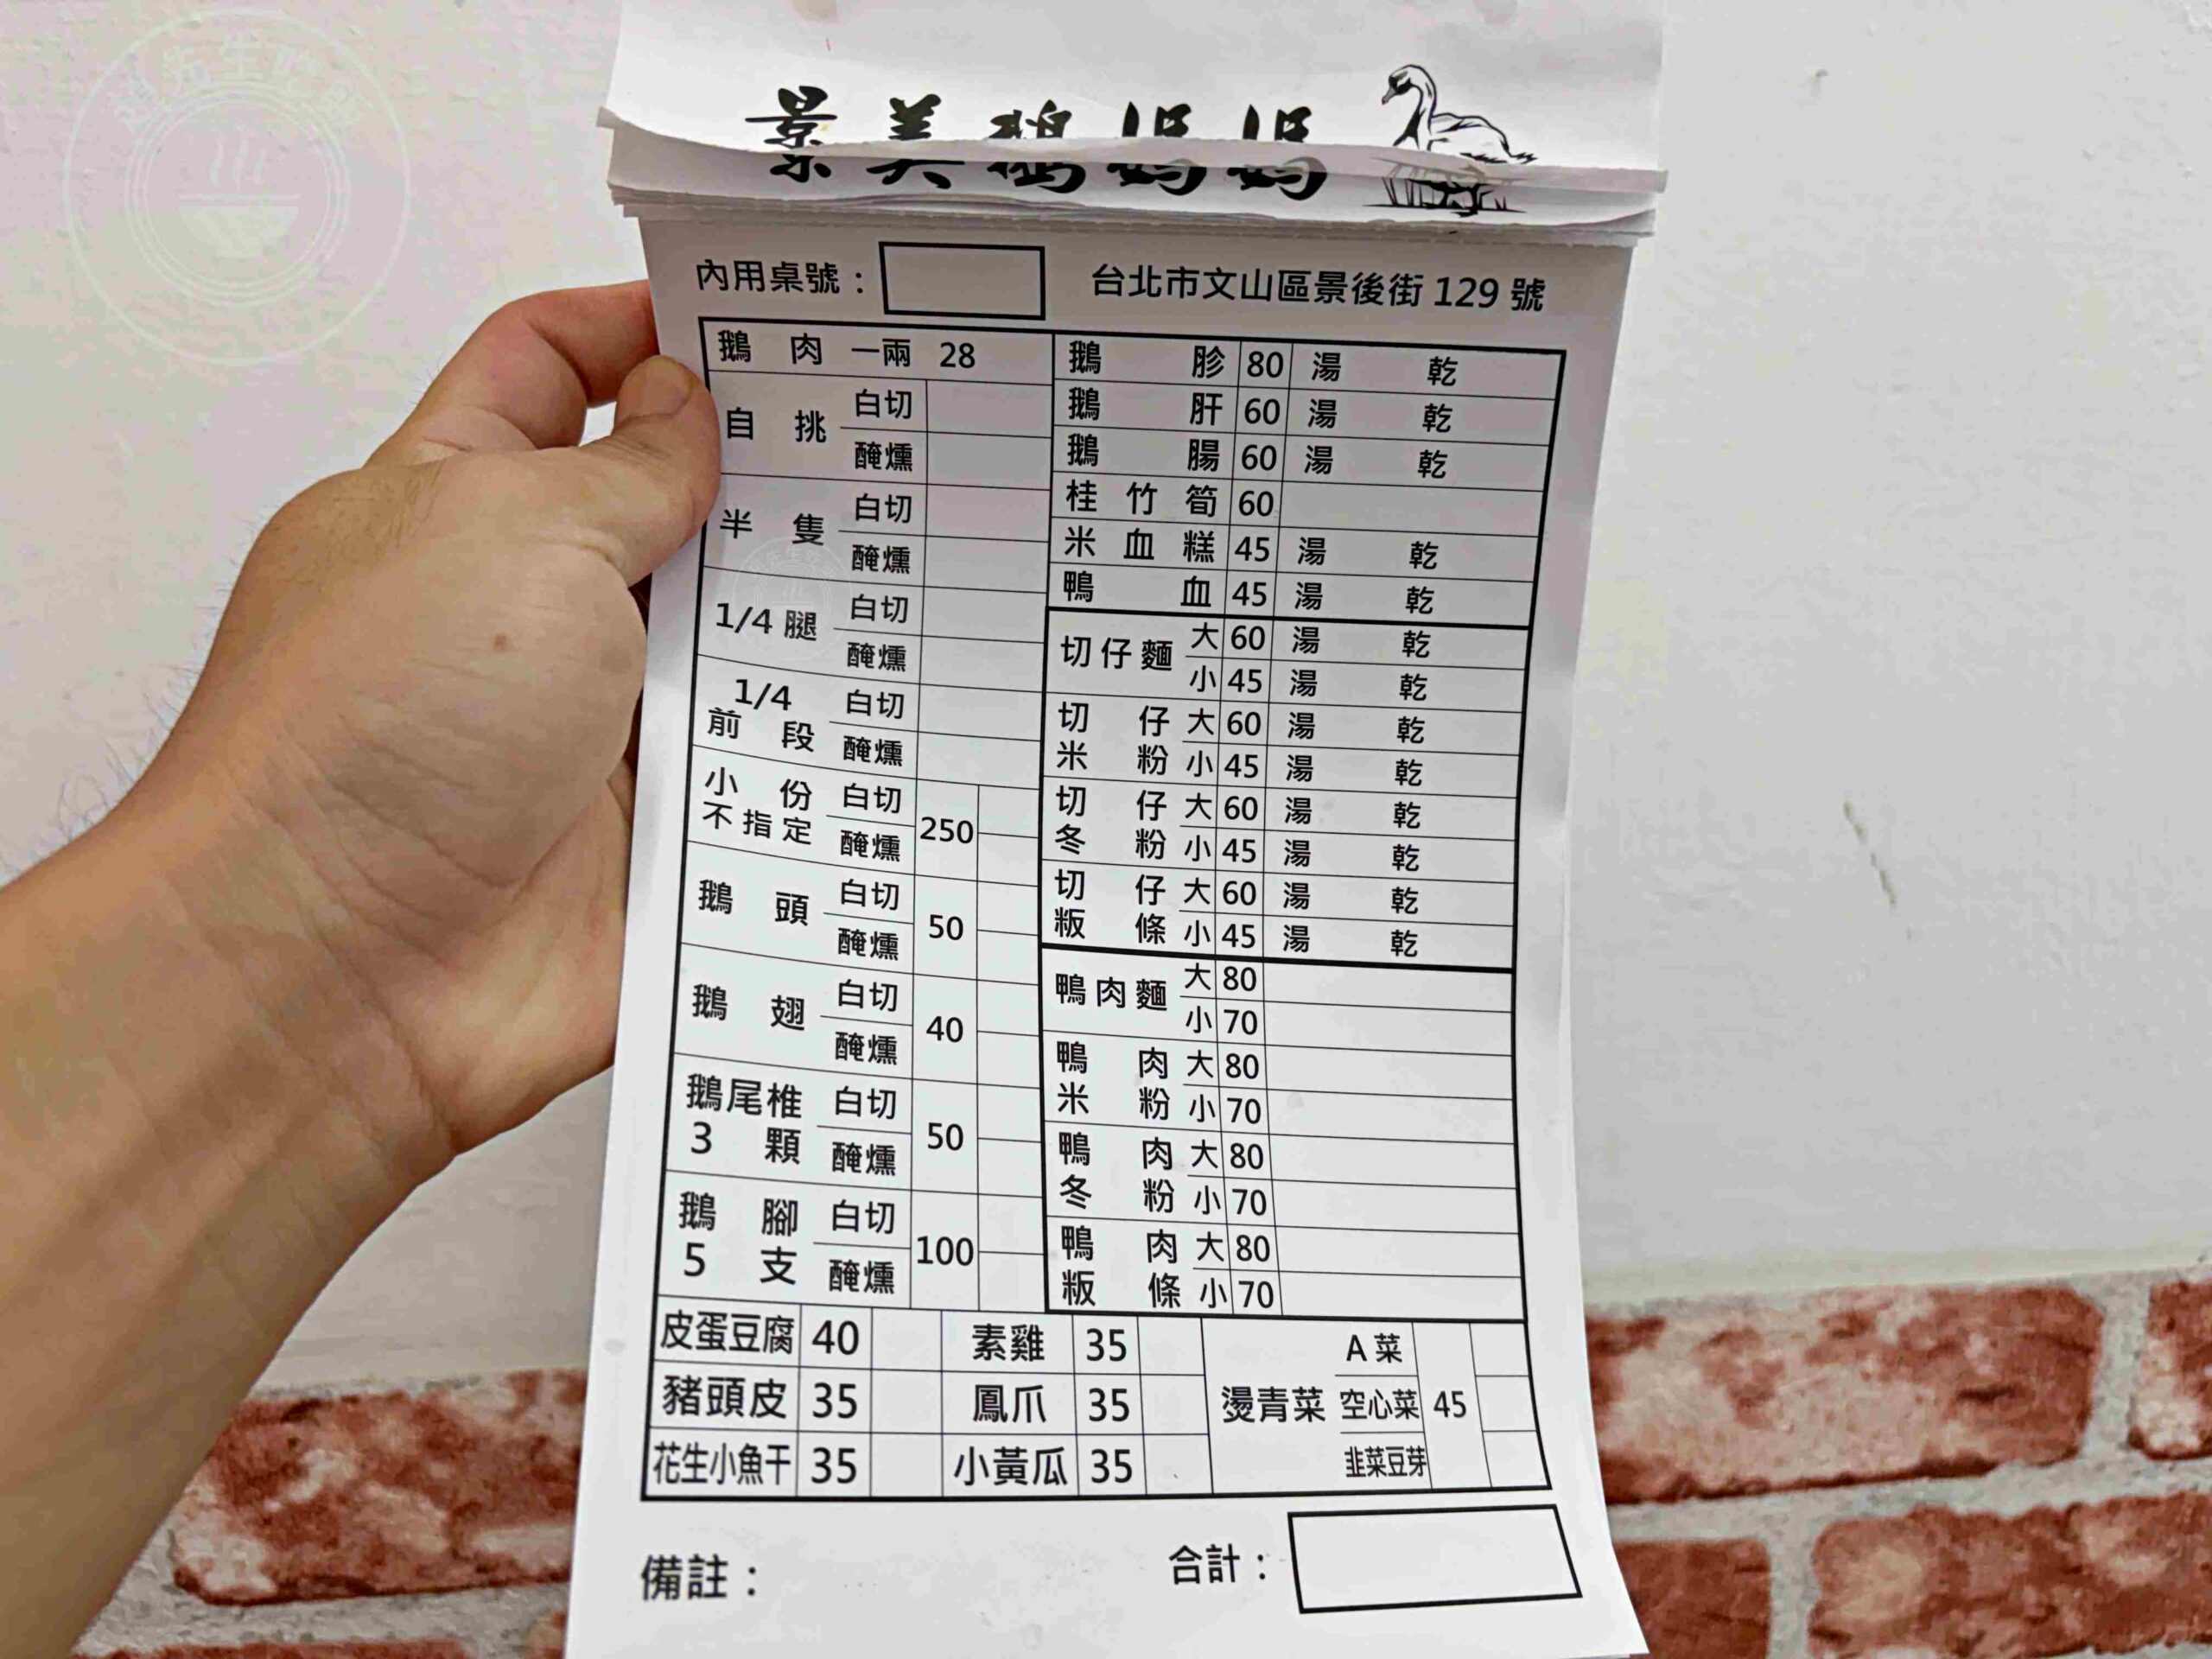 景美鵝媽媽
內用桌號：
台北市文山區景後街 129 號
鵝肉 一兩 28
自挑 白切
醃燻
半隻 白切
醃燻
1/4 腿 白切
醃燻
1/4 前段 白切
醃燻
小份 不指定 白切 250
醃燻
鵝頭 白切 50
醃燻
鵝翅 白切 40
醃燻
鵝尾椎 3 顆 白切 50
醃燻
鵝腳 5 支 白切 100
醃燻
鵝胗 80 湯 乾
鵝肝 60 湯 乾
鵝腸 60 湯 乾
桂竹筍 60
米血糕 45 湯 乾
鴨血 45 湯 乾
切仔麵 大 60 湯 乾
小 45 湯 乾
切仔米粉 大 60 湯 乾
小 45 湯 乾
切仔冬粉 大 60 湯 乾
小 45 湯 乾
切仔粄條 大 60 湯 乾
小 45 湯 乾
鴨肉麵 大 80
小 70
鴨肉米粉 大 80
小 70
鴨肉冬粉 大 80
小 70
鴨肉粄條 大 80
小 70
皮蛋豆腐 40 素雞 35 燙青菜 A 菜 45
豬頭皮 35 鳳爪 35 空心菜
花生小魚干 35 小黃瓜 35 韭菜豆芽
備註：
合計：